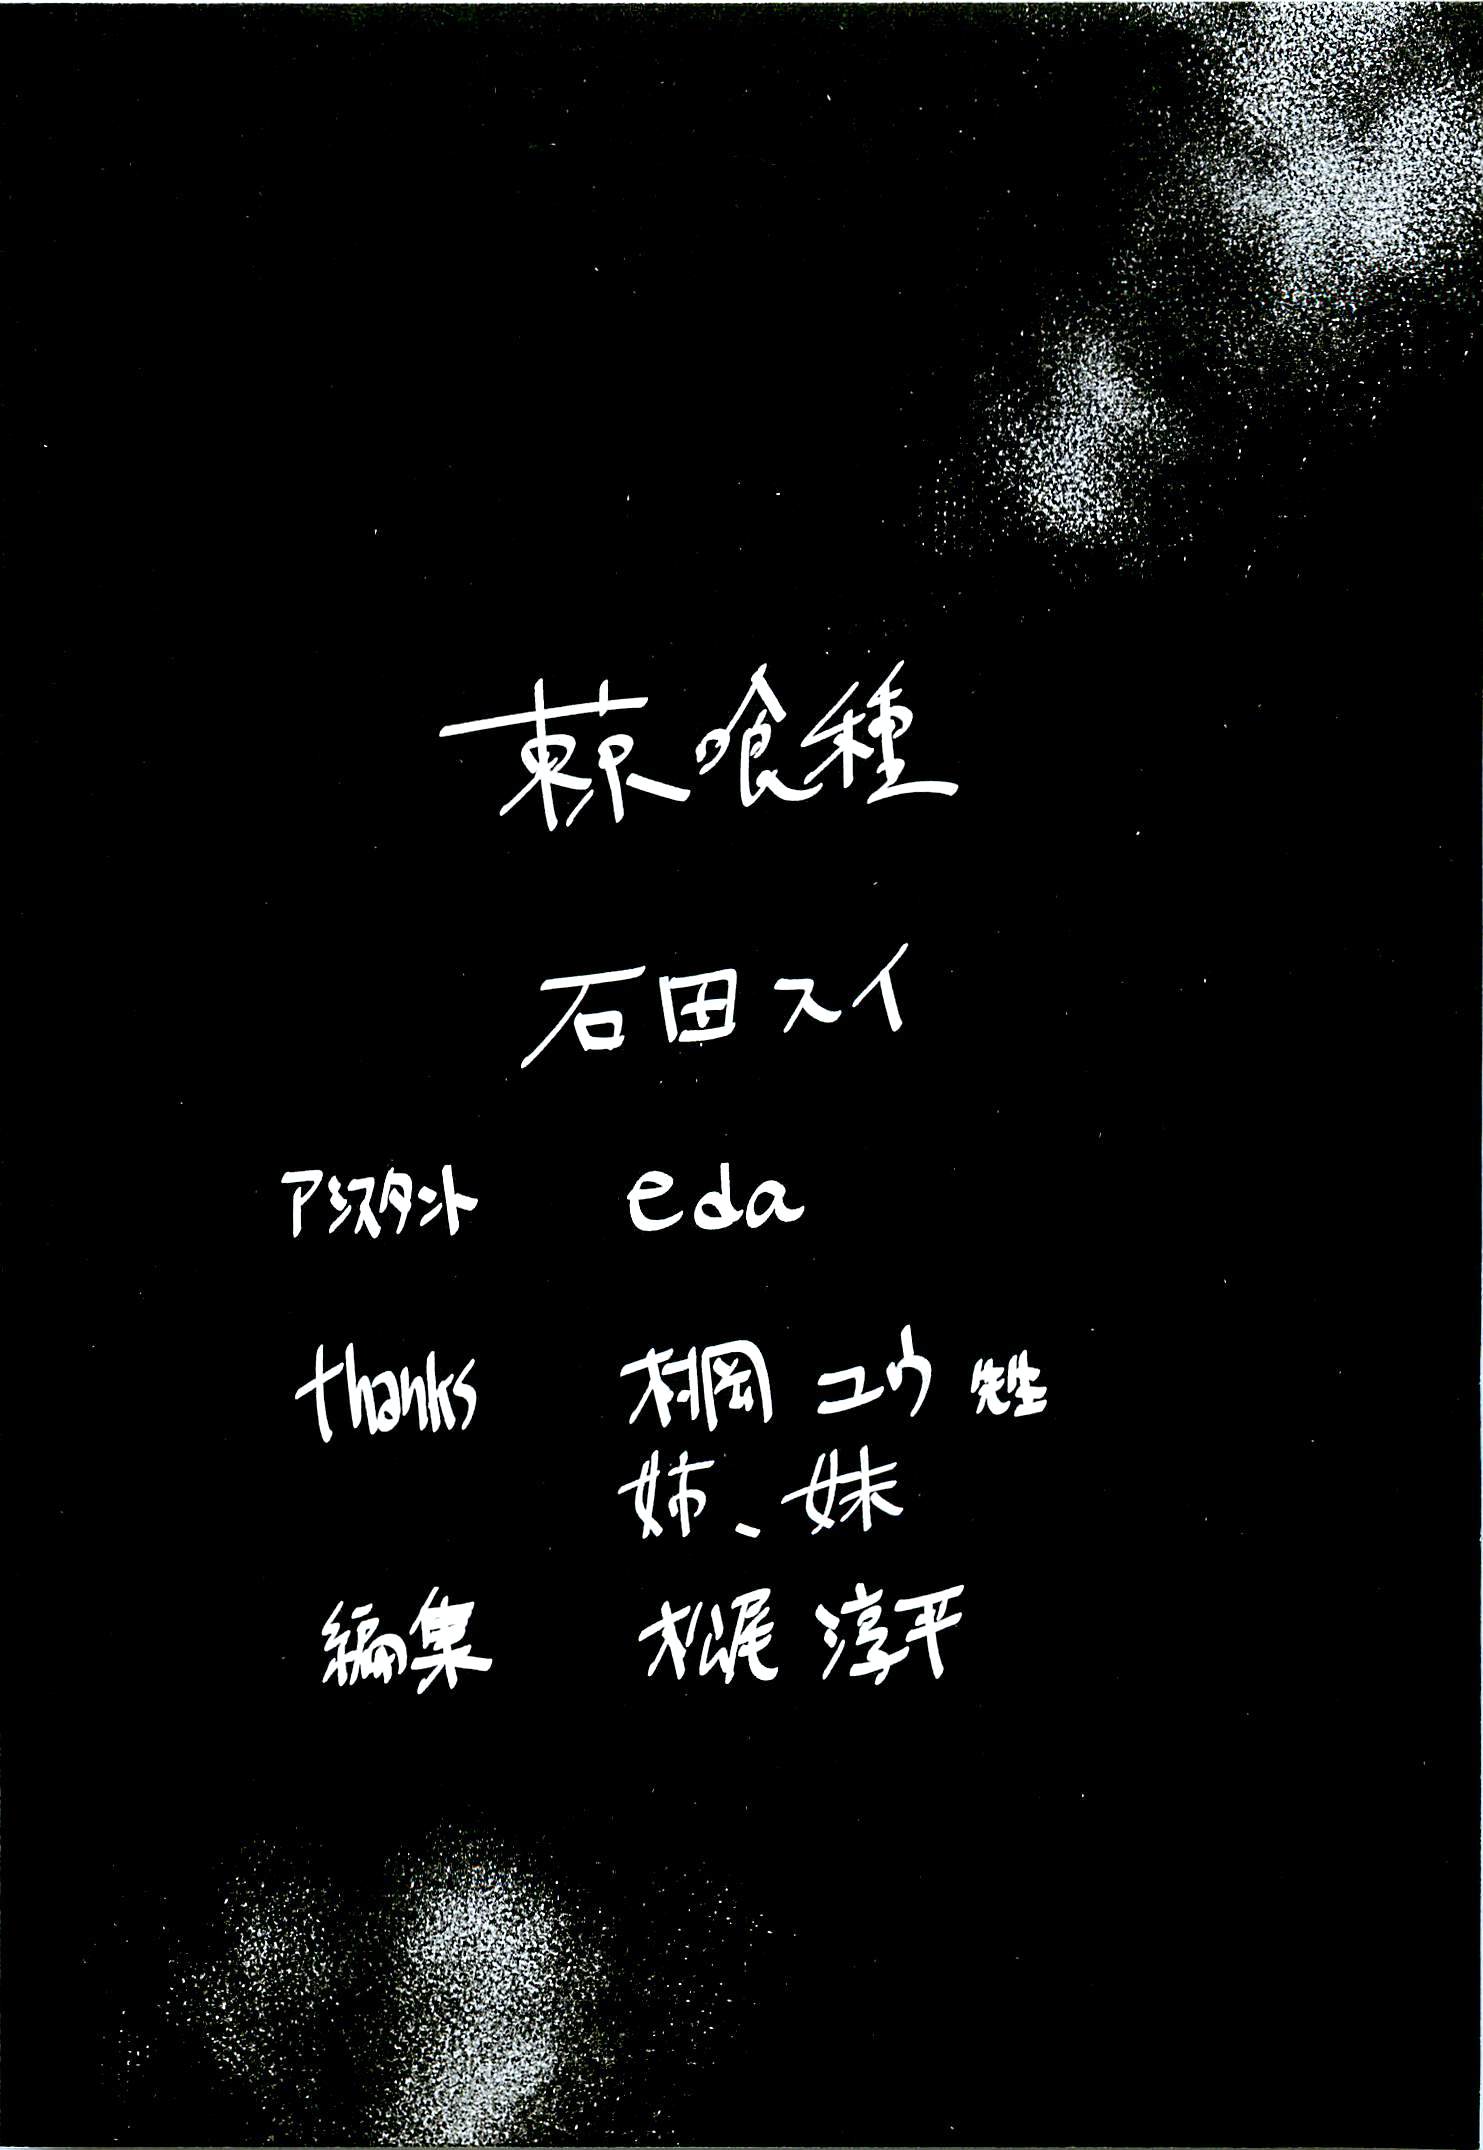 東京喰種
石田スイ
アシスタント eda
thanks 桐岡 ユウ 先生
姉、妹
編集 松尾 淳平